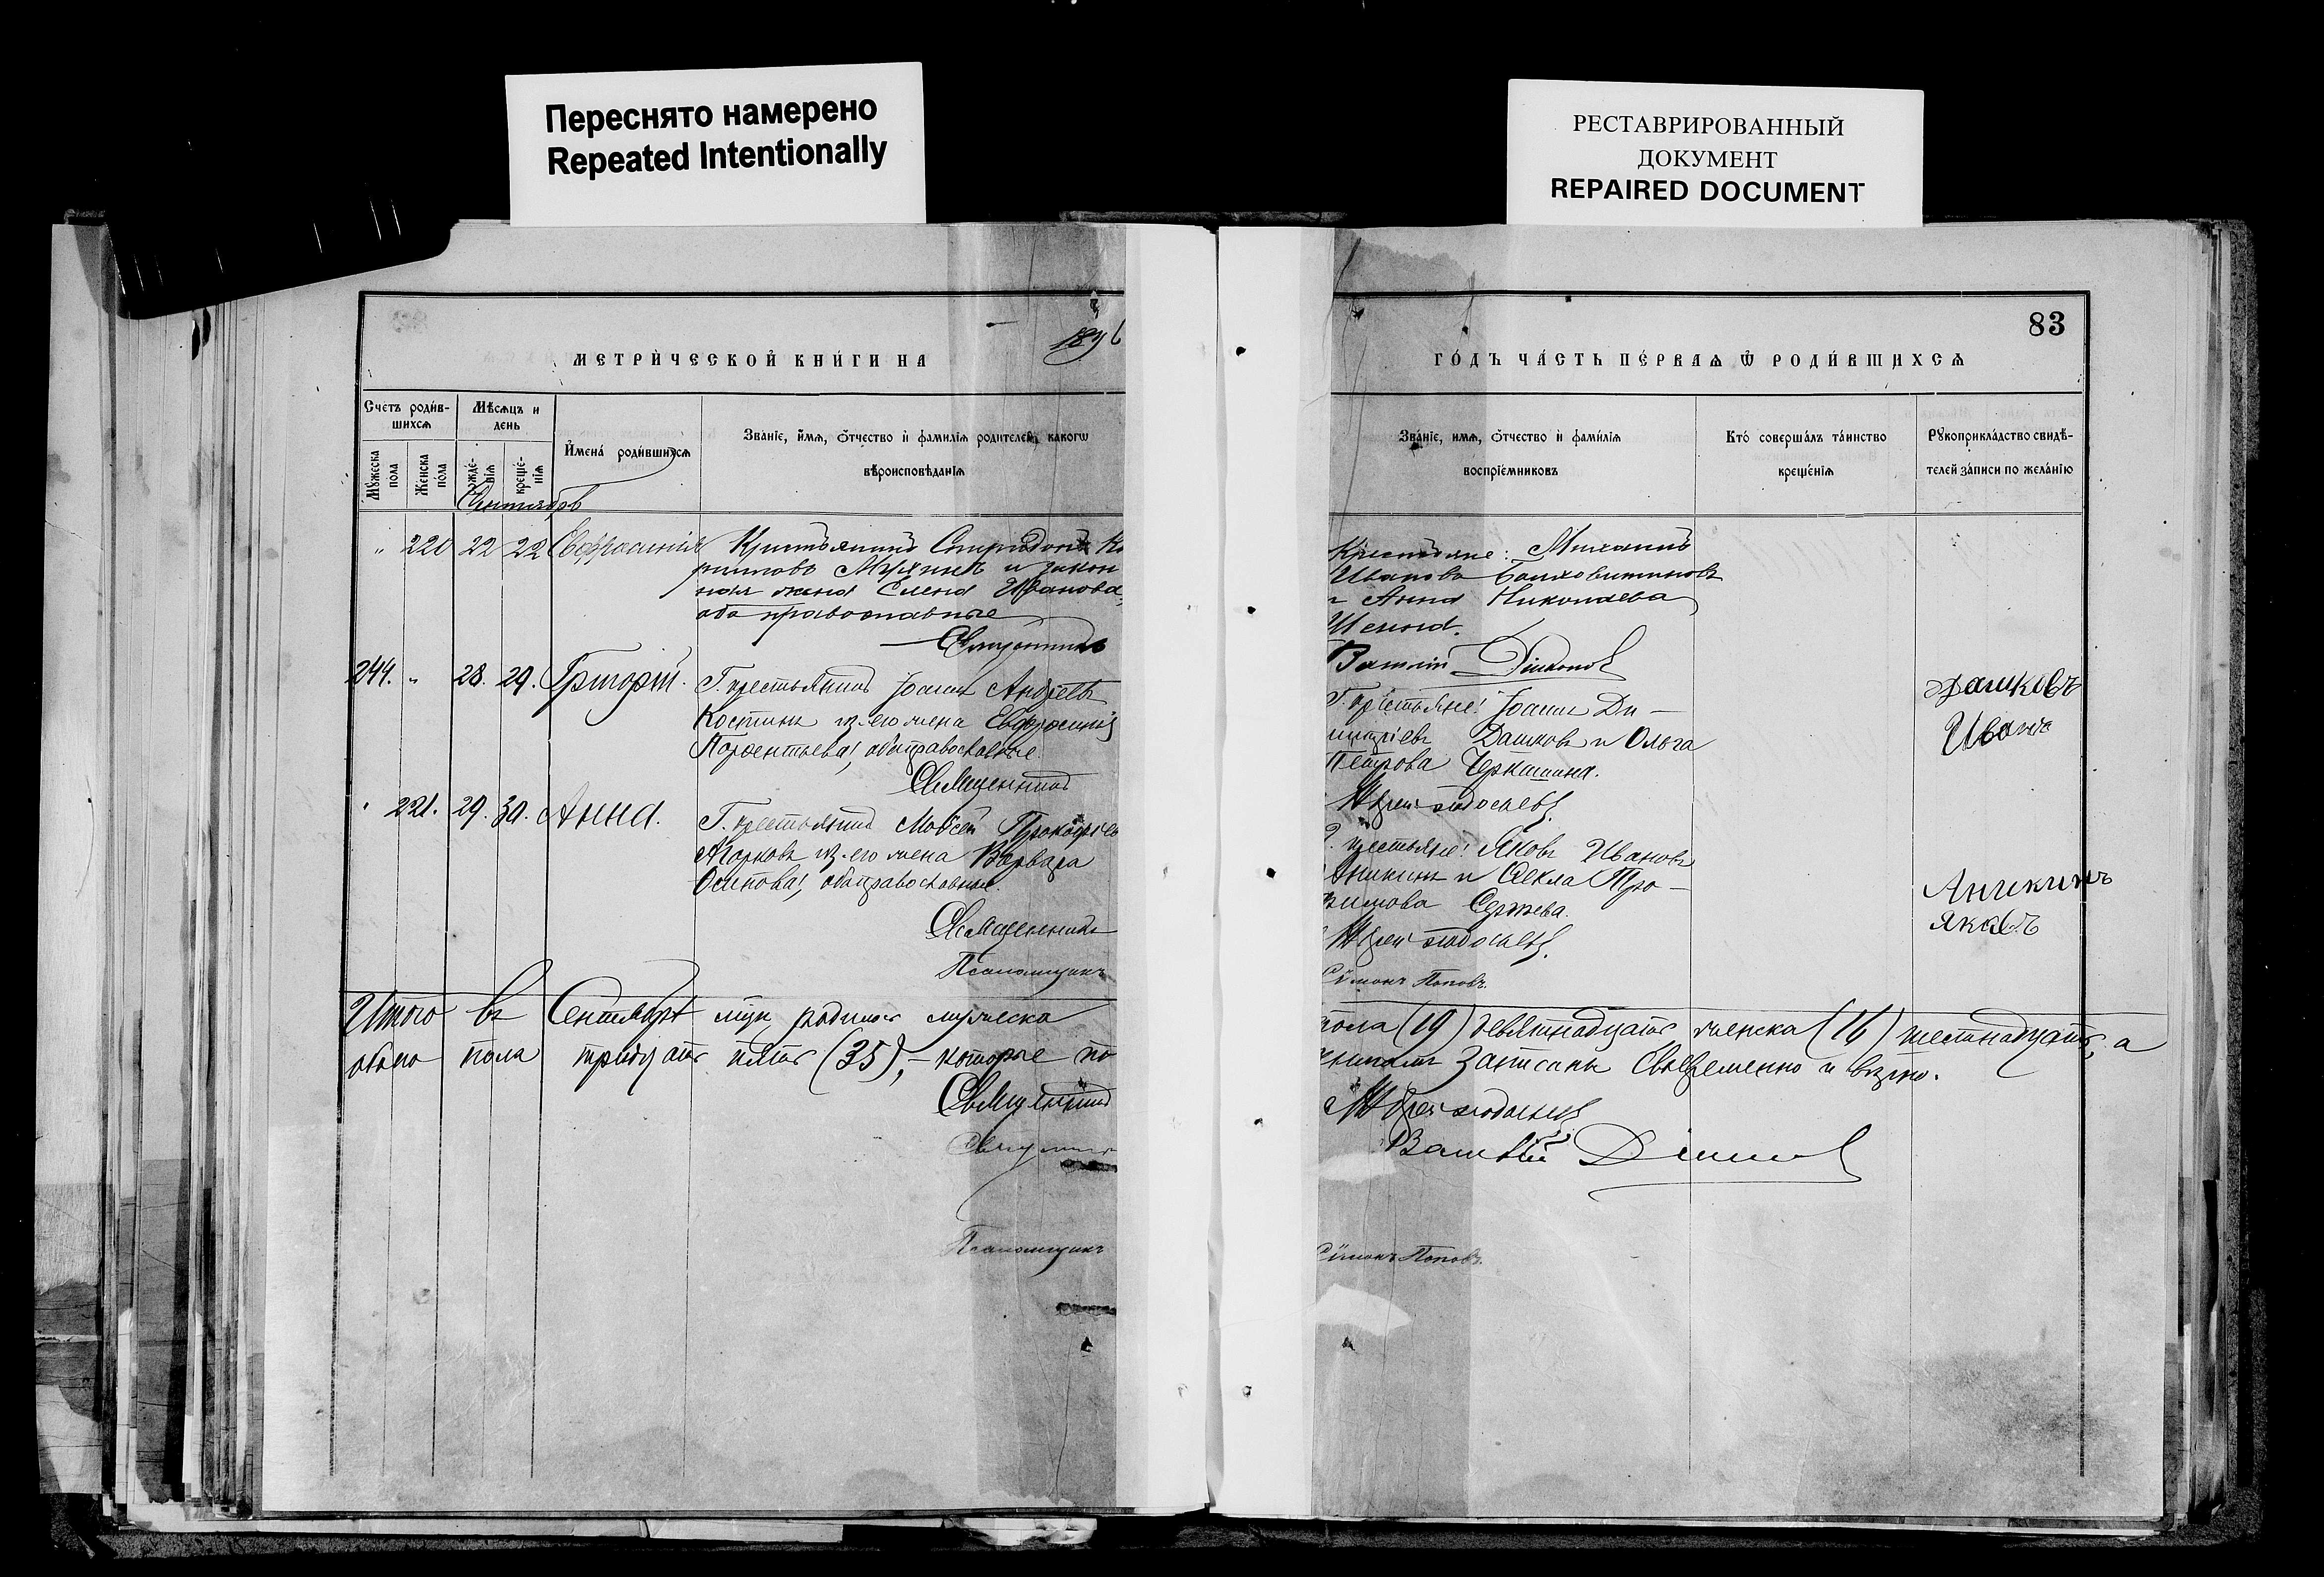 Переснято намерено
Repeated Intentionally
РЕСТАВРИРОВАННЫЙ
ДОКУМЕНТ
REPAIRED DOCUMENT
83
1896
МЕТРИ́ЧЕСКОЙ КНИ́ГИ НА
ГО́ДЪ ЧА́СТЬ ПЕ́РВАѦ Ѿ РОДИ́ВШИХСѦ
Счетъ роди́в-
шихсѧ
Мꙋжеска
пола
Женска
по́ла
Мѣсѧцъ и
день
креще́-
нїѧ
И҆мена̀ роди́вшихсѧ
Зва́нїе, и҆́мѧ, ѻ҆́тчество и҆ фами́лїѧ роди́телей, како́гѡ
вѣроисповѣ́данїѧ
Зва́нїе, имѧ, ѻ҆́тчество и҆ фами́лїѧ
воспрїе́мниковъ
Кто̀ соверша́лъ та́инство
креще́нїѧ
Рꙋкоприкла́дство свидѣ́-
телей за́писи по жела́нїю
Сентябрь
" 220 22 22 Евфросинія
Крестьянинъ Спиридонъ
и закон
ная жена Елена Иванова,
оба православные
Священникъ
Крестьяне: Михаилъ
Иванова Болховитиновъ
и Анна Николаева
Василій Дикаговъ
244. " 28. 29. Григорій.
Г. крестьянинъ Іоаннъ Андреевъ
Костинъ и з. его жена Евфросинія
Парфентьева, оба православные.
Священникъ
Г. крестьяне: Іоаннъ Ди-
митріевъ Дашковъ и Ольга
Петрова Черкашина.
Дашковъ
Иванъ
" 221. 29. 30. Анна.
Г. крестьянинъ Моѵсей Прокофіев
Агарковъ и з. его жена Варвара
Осипова, оба православные.
Священникъ
Псаломщикъ
Г. крестьяне: Яковъ Ивановъ
Аникинъ и Ѳекла Про-
Сергѣева.
Сѵмонъ Поповъ.
Аникинъ
Яковъ
Итого въ Сентябрѣ мцѣ родилось мужеска пола (19) девятнадцать женска (16) шестнадцать, а
обоего пола тридцать пять (35), - которые по записаны своевременно и вѣрно.
Священникъ
Священникъ Василій
Псаломщикъ Сѵмонъ Поповъ.